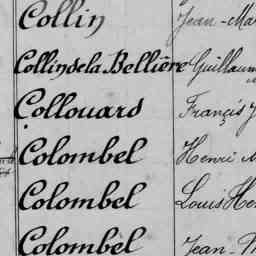 Collin Jean-Ma
Collin de la Bellière Guillaum
Collouard François J
Colombel Henri M
Colombel Louis Hen
Colombel Jean-M